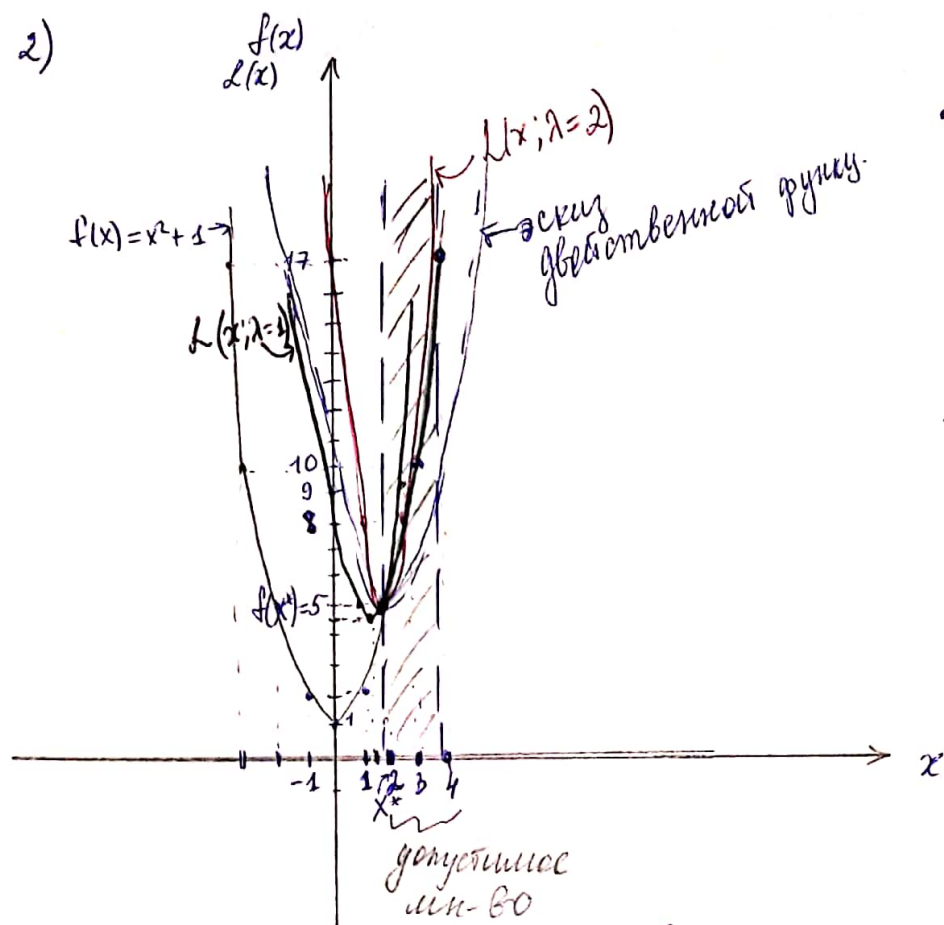 2)
f(x)
L(x)
L(x; λ=2)
эскиз
двойственной функц.
f(x) = x² + 1
17
L(x; λ=1)
10
9
8
f(x*) = 5
1
-1 1 2 3 4
x
x*
допустимое
мн-во